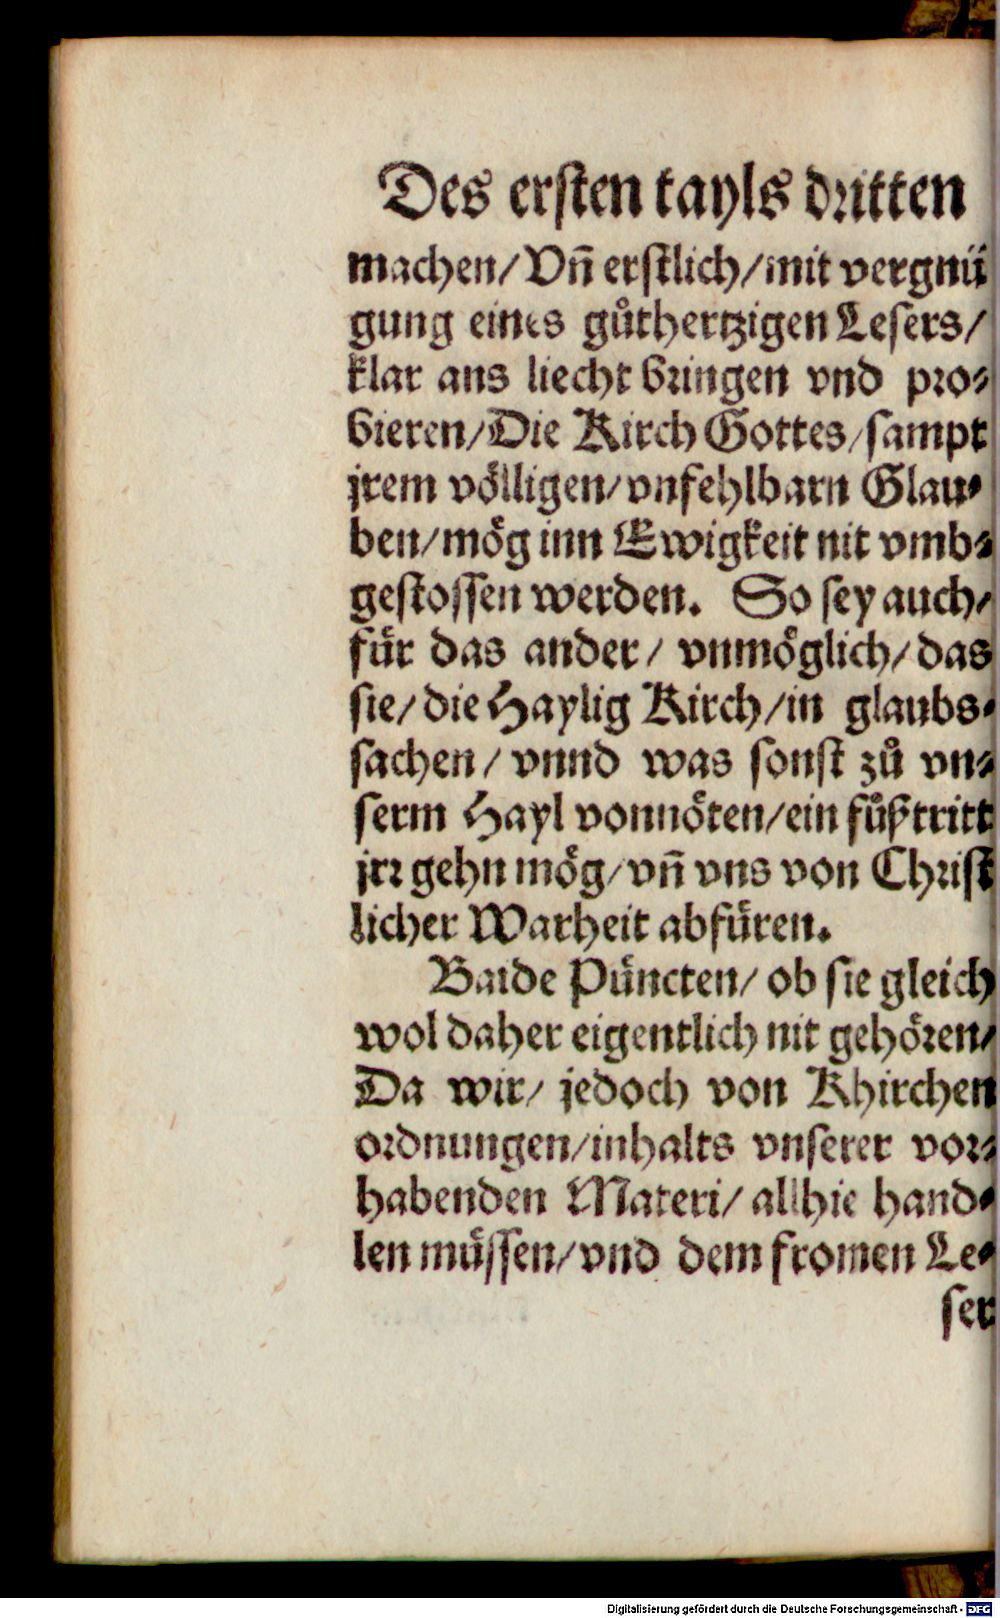 Des ersten tayls dritten
machen/ Vñ erstlich/ mit vergnü
gung eines gůthertzigen Lesers/
klar ans liecht bringen vnd pro⸗
bieren/ Die Kirch Gottes/ sampt
jrem völligen/ vnfehlbarn Glau⸗
ben/ mög inn Ewigkeit nit vmb⸗
gestossen werden. So sey auch/
für das ander/ vnmöglich/ das
sie/ die Haylig Kirch/ in glaubs⸗
sachen/ vnnd was sonst zů vn⸗
serm Hayl vonnöten/ ein fůßtritt
jrr gehn mög/ vñ vns von Christ
licher Warheit abfüren.
Baide Püncten/ ob sie gleich
wol daher eigentlich nit gehören/
Da wir/ jedoch von Khirchen
ordnungen/ inhalts vnserer vor⸗
habenden Materi/ allhie hand⸗
len müssen/ vnd dem fromen Le⸗
ser
Digitalisierung gefördert durch die Deutsche Forschungsgemeinschaft - DFG